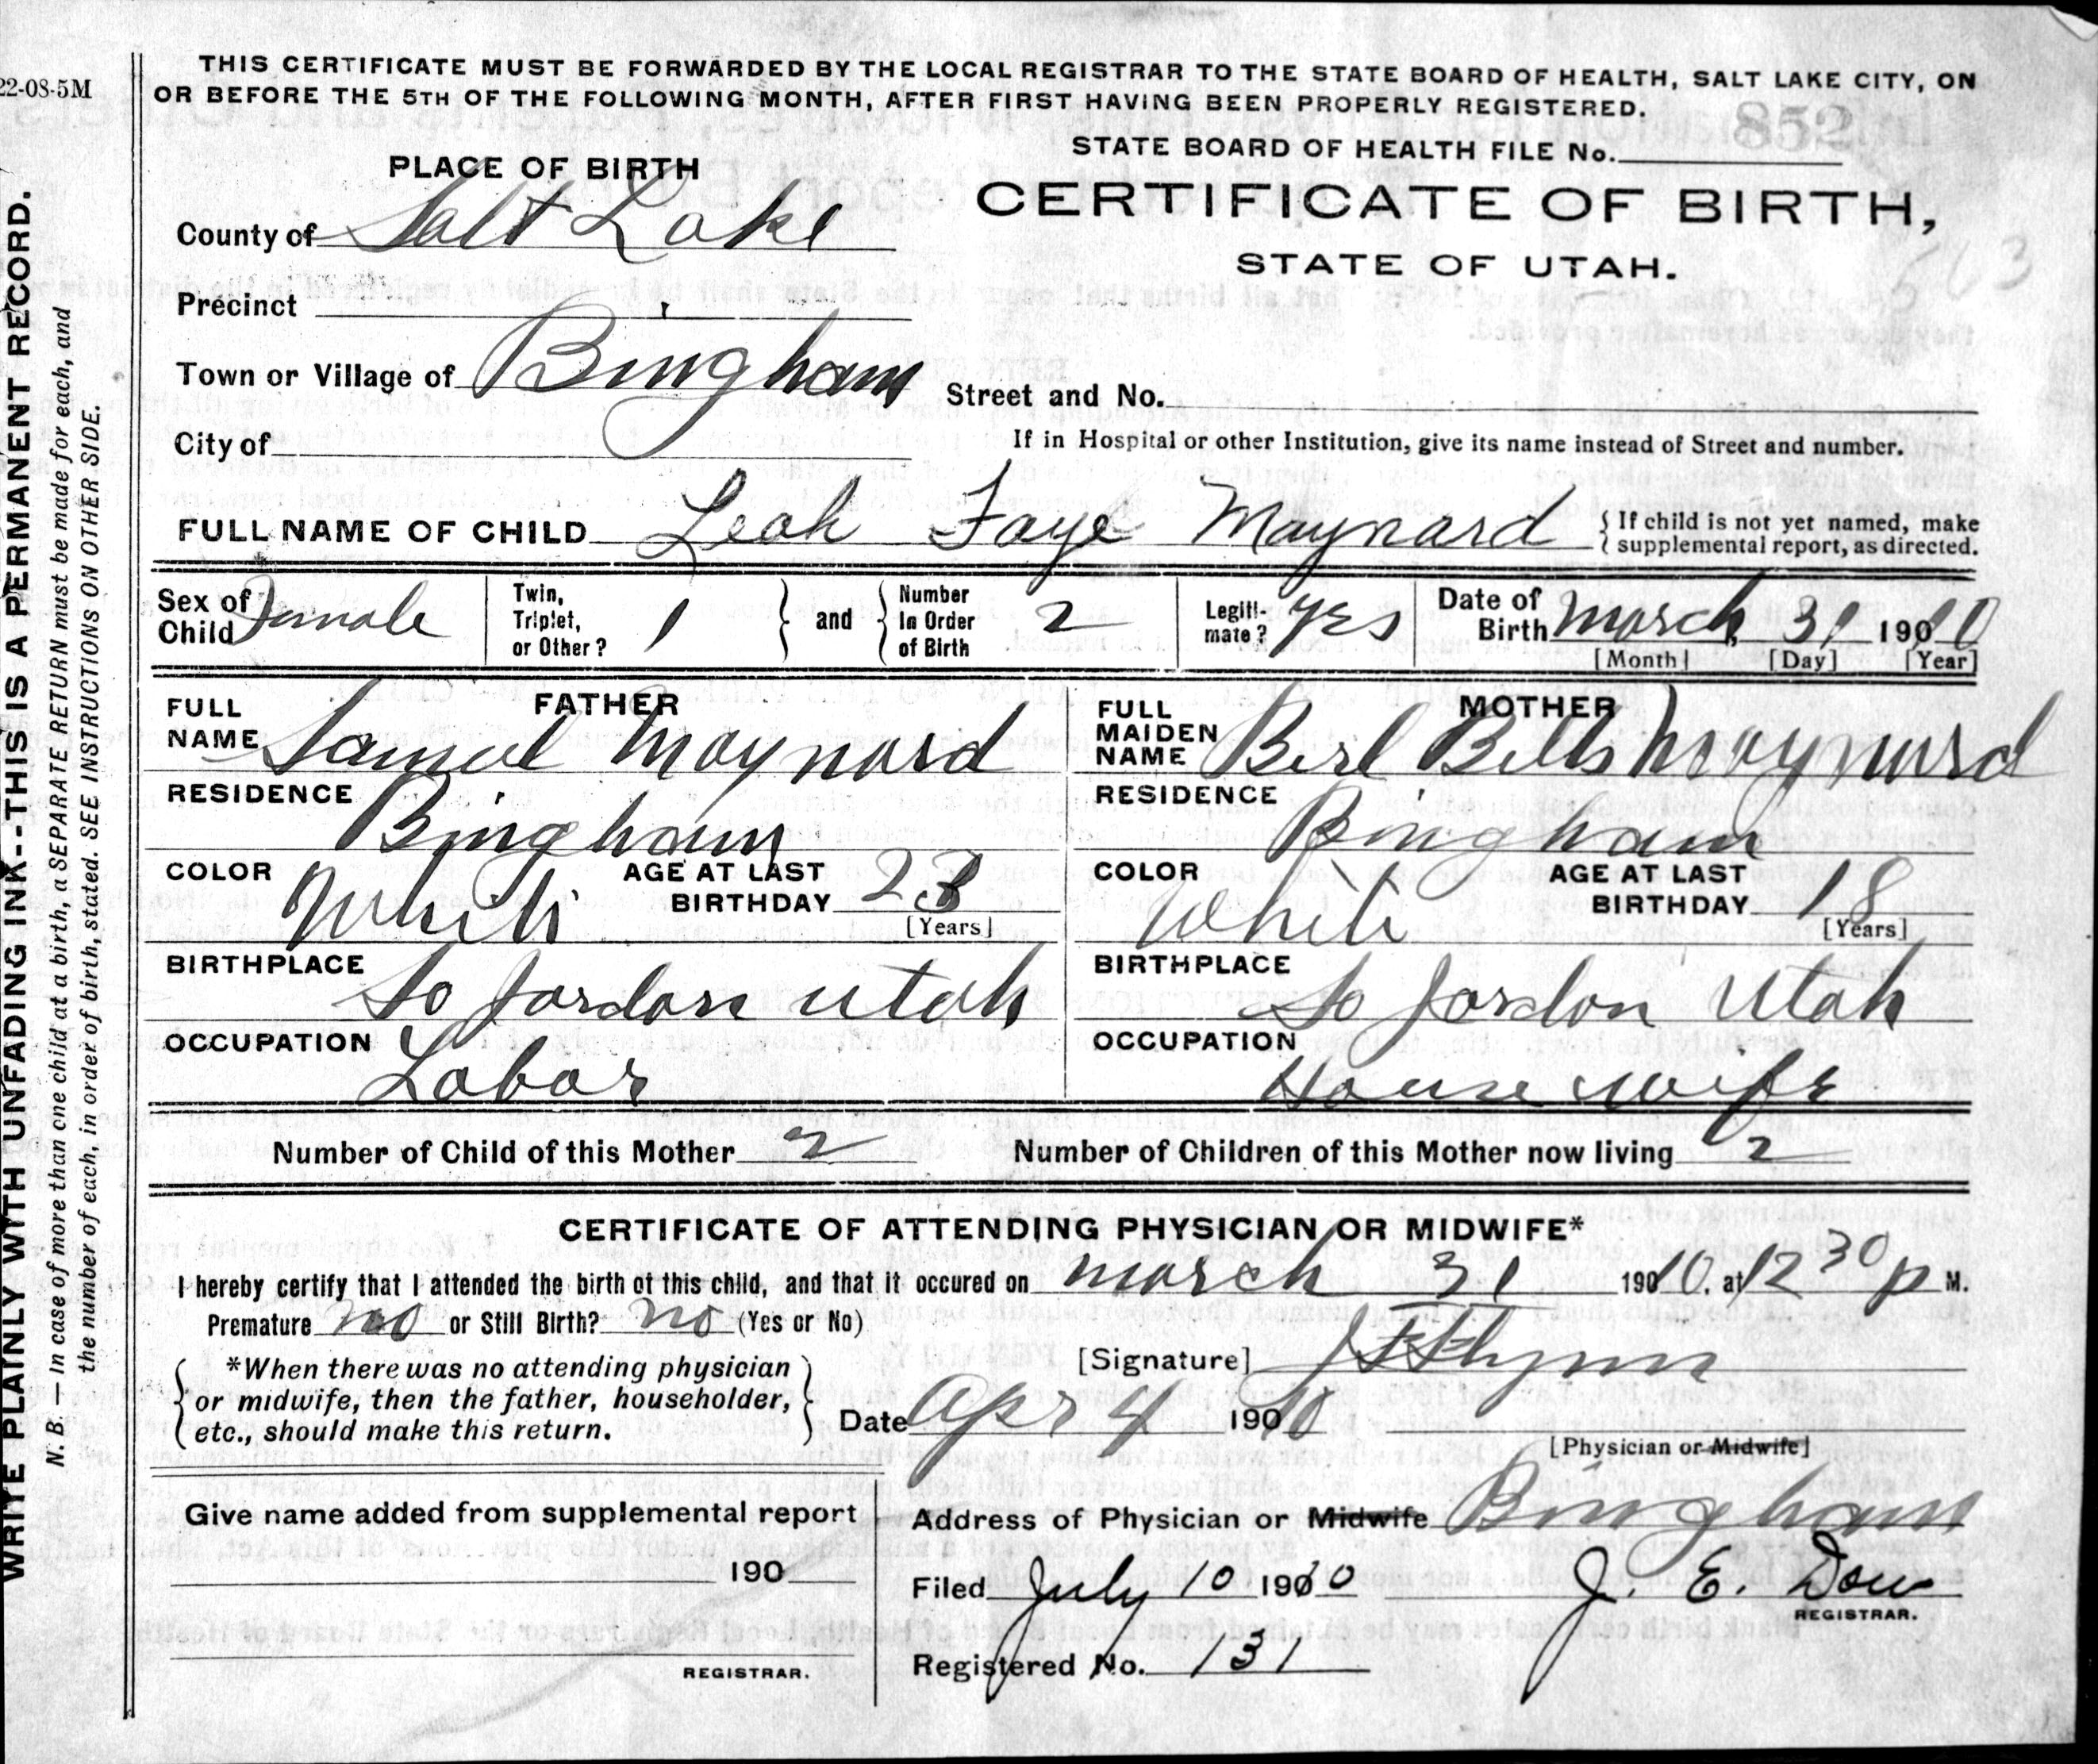 22-08-5M
THIS CERTIFICATE MUST BE FORWARDED BY THE LOCAL REGISTRAR TO THE STATE BOARD OF HEALTH, SALT LAKE CITY, ON
OR BEFORE THE 5TH OF THE FOLLOWING MONTH, AFTER FIRST HAVING BEEN PROPERLY REGISTERED.
852
STATE BOARD OF HEALTH FILE No.
PLACE OF BIRTH
CERTIFICATE OF BIRTH,
STATE OF UTAH.
County of Salt Lake
Precinct
Town or Village of Bingham Street and No.
City of If in Hospital or other Institution, give its name instead of Street and number.
FULL NAME OF CHILD Leah Faye Maynard { If child is not yet named, make
supplemental report, as directed.
Sex of Child Female
Twin, Triplet, or Other? 1 } and { Number In Order of Birth 2
Legiti-mate? Yes
Date of Birth March 31 19010
[Month] [Day] [Year]
FATHER
FULL NAME Samuel Maynard
RESIDENCE Bingham
COLOR White AGE AT LAST BIRTHDAY 23
[Years]
BIRTHPLACE So Jordan Utah
OCCUPATION Labor
MOTHER
FULL MAIDEN NAME Berl Bills Maynard
RESIDENCE Bingham
COLOR White AGE AT LAST BIRTHDAY 18
[Years]
BIRTHPLACE So Jordan Utah
OCCUPATION House wife
Number of Child of this Mother 2 Number of Children of this Mother now living 2
CERTIFICATE OF ATTENDING PHYSICIAN OR MIDWIFE*
I hereby certify that I attended the birth of this child, and that it occured on March 31 19010. at 12 30 p M.
Premature no or Still Birth? no (Yes or No)
*When there was no attending physician
or midwife, then the father, householder,
etc., should make this return.
[Signature] Flynn
Date Apr 4 19010
[Physician or Midwife]
Give name added from supplemental report
190
REGISTRAR.
Address of Physician or Midwife Bingham
Filed July 10 19010 J. E. Dow
REGISTRAR.
Registered No. 131
WRITE PLAINLY WITH UNFADING INK--THIS IS A PERMANENT RECORD.
N. B. — In case of more than one child at a birth, a SEPARATE RETURN must be made for each, and
the number of each, in order of birth, stated. SEE INSTRUCTIONS ON OTHER SIDE.